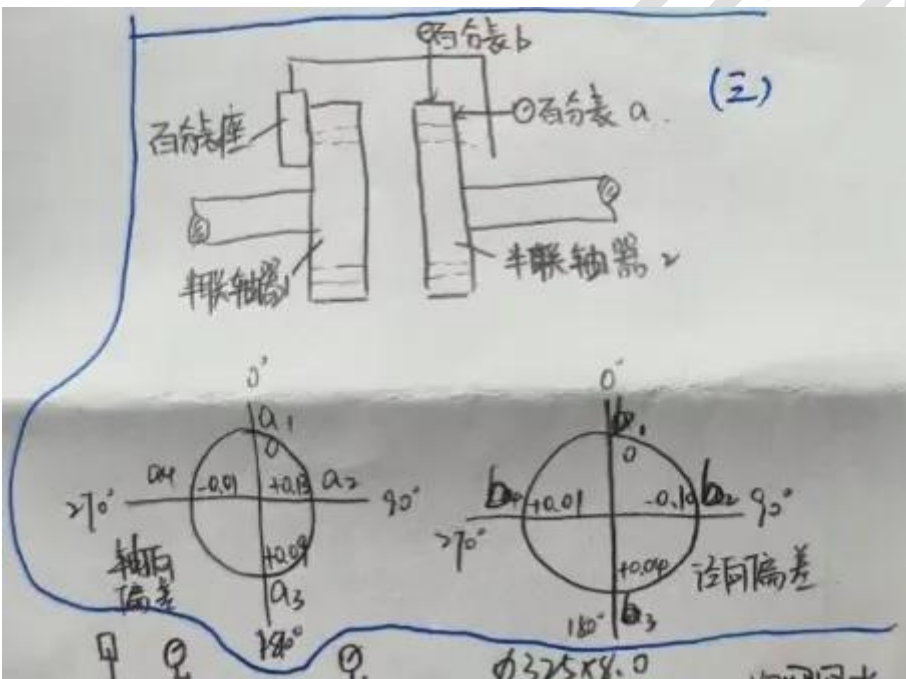 百分表b
(三)
百分表座
百分表 a.
半联轴器1
半联轴器 2
0°
a1
0
a4
-0.01
+0.13
a2
270°
90°
+0.09
轴向
偏差
a3
180°
0°
b1
0
b4
+0.01
-0.10
b2
90°
270°
+0.04
径向偏差
180°
b3
φ325×8.0